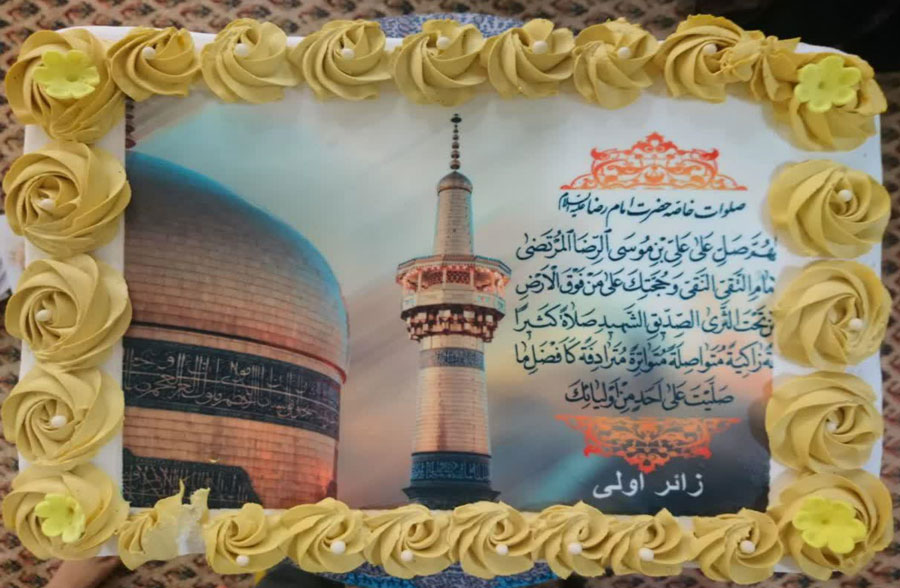 صلوات خاصه حضرت امام رضا علیه‌السلام
لهُمَّ صَلِّ عَلى عَلِيِّ بْنِ مُوسَى الرِّضَا الْمُرْتَضى
مامِ التَّقِيِّ النَّقِيِّ وَ حُجَّتِكَ عَلى مَنْ فَوْقَ الْاَرْضِ
نْ تَحْتَ الثَّرى الصِّدّيقِ الشَّهيدِ صَلاةً كَثيرًا
ةً زاكِيَةً مُتَواصِلَةً مُتَواتِرَةً مُتَرادِفَةً كَاَفْضَلِ ما
صَلَّيْتَ عَلى اَحَدٍ مِنْ اَوْلِيائِكَ
زائر اولی